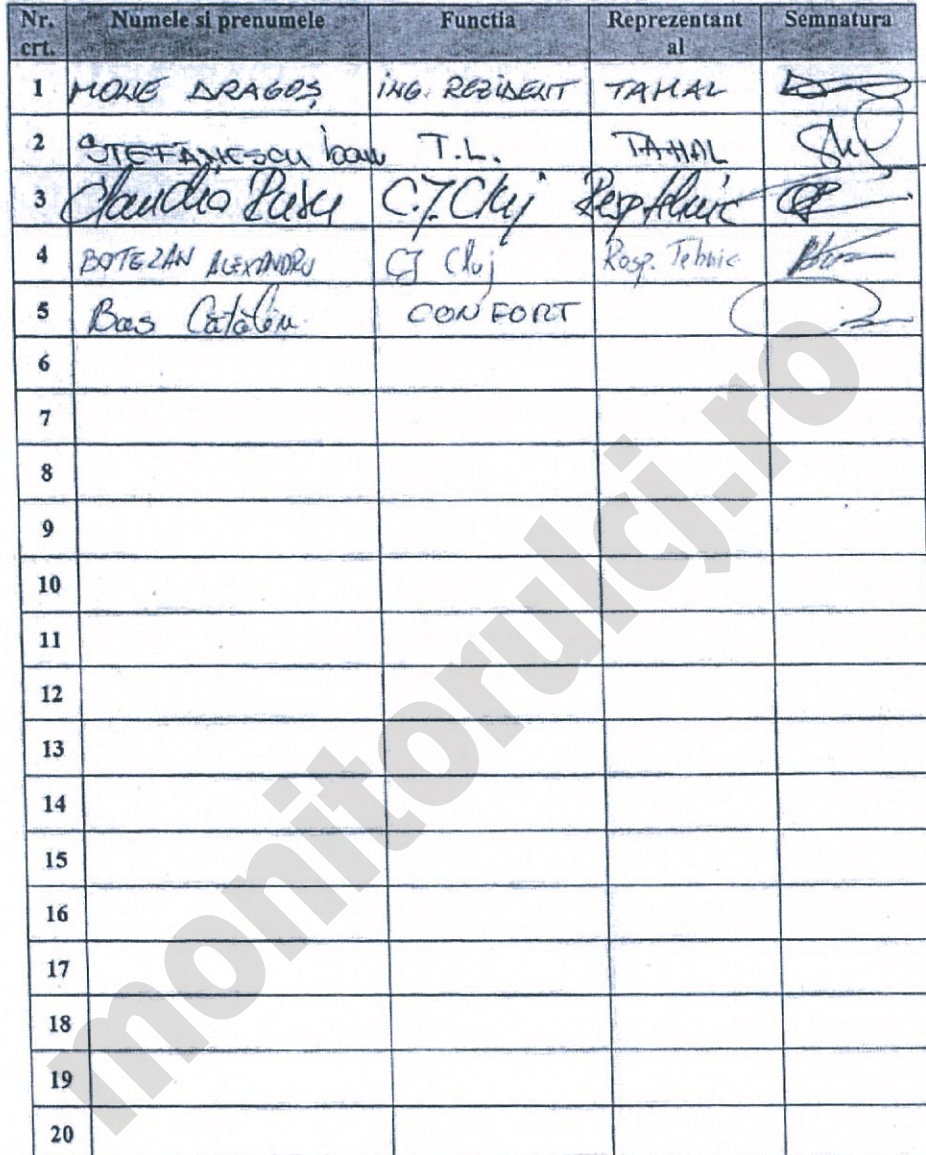 Nr. crt. Numele si prenumele Functia Reprezentant al Semnatura
1 MONE DRAGOȘ ING. REZIDENT TAHAL
2 STEFANESCU Ioan T.L. TAHAL
3 Claudia Rusu C.J. Cluj Resp tehnic
4 BOTEZAN ALEXANDRU CJ Cluj Resp. Tehnic
5 Bas Cătălin CONFORT
6
7
8
9
10
11
12
13
14
15
16
17
18
19
20
monitorulcj.ro